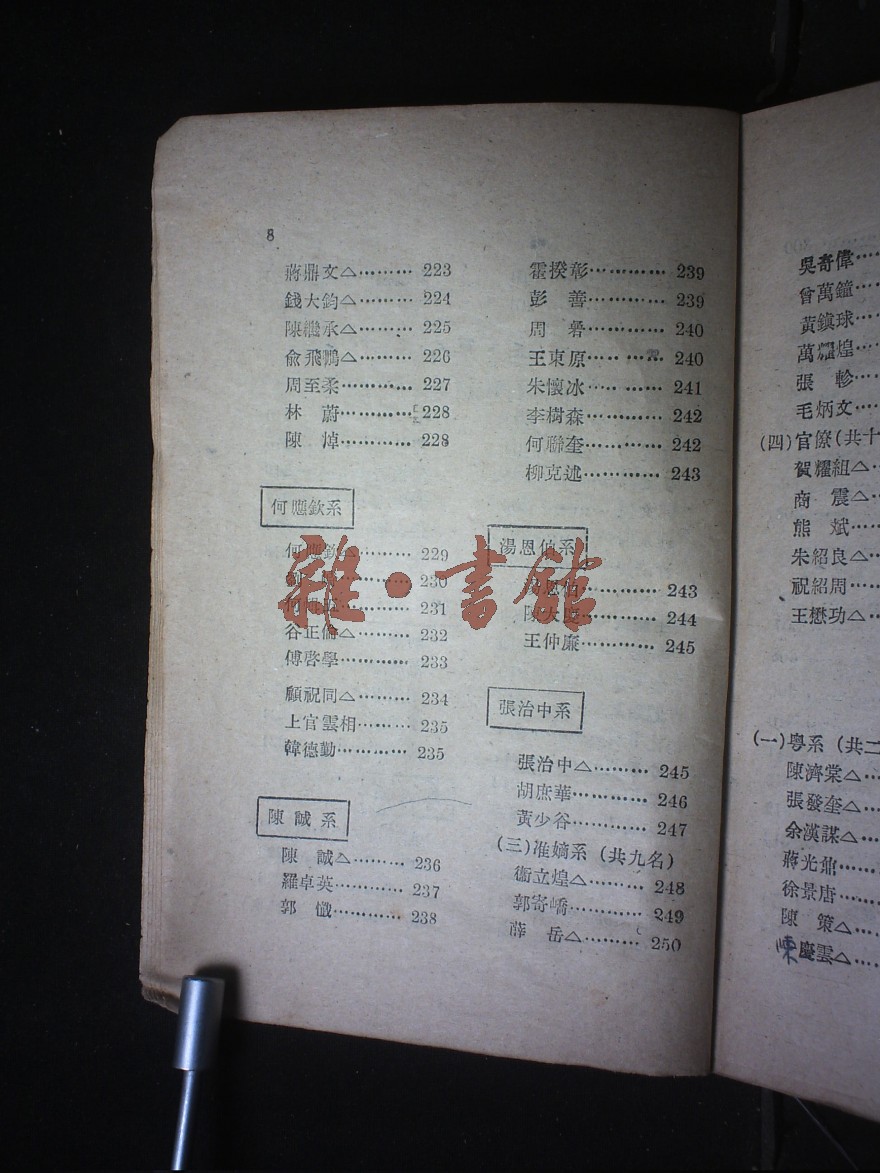 8
蔣鼎文△……… 223
錢大鈞△……… 224
陳繼承△……… 225
俞飛鵬△……… 226
周至柔………… 227
林　蔚………… 228
陳　焯………… 228
何應欽系
何應欽△……… 229
230
231
谷正倫△……… 232
傅啓學………… 233
顧祝同△……… 234
上官雲相……… 235
韓德勤………… 235
陳誠系
陳　誠△……… 236
羅卓英………… 237
郭　懺………… 238
霍揆彰………… 239
彭　善………… 239
周　碞………… 240
王東原………… 240
朱懷冰………… 241
李樹森………… 242
何聯奎………… 242
柳克述………… 243
湯恩伯系
湯恩伯………… 243
陳大慶………… 244
王仲廉………… 245
張治中系
張治中△……… 245
胡庶華………… 246
黃少谷………… 247
(三)准嫡系（共九名）
衞立煌△……… 248
郭寄嶠………… 249
薛　岳△……… 250
吳奇偉……
曾萬鐘……
黃鎮球……
萬耀煌……
張　軫……
毛炳文……
(四)官僚(共十
賀耀組△…
商　震△…
熊　斌……
朱紹良△…
祝紹周……
王懋功△…
(一)粵系（共二
陳濟棠△…
張發奎△…
余漢謀△…
蔣光鼐……
徐景唐……
陳　策△…
陳慶雲△…
雜·書館